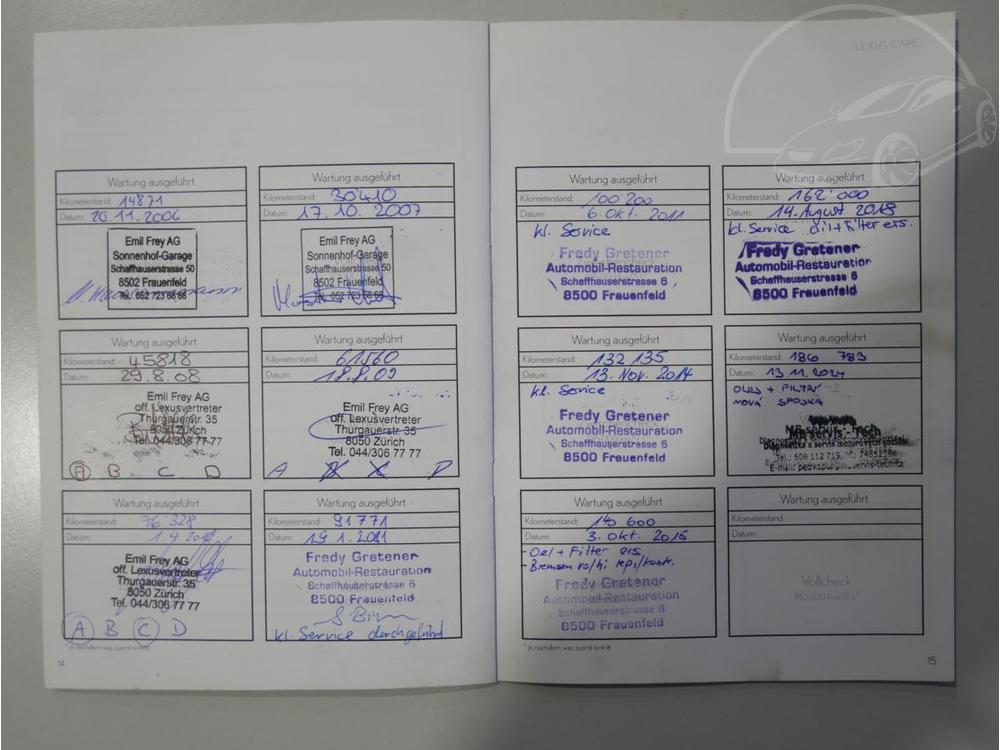 LEXUS CARE
Wartung ausgeführt
Kilometerstand: 14871
Datum: 20.11.2006
Emil Frey AG
Sonnenhof-Garage
Schaffhauserstrasse 50
8502 Frauenfeld
Tel. 052 723 68 68
Wartung ausgeführt
Kilometerstand: 30410
Datum: 17.10.2007
Emil Frey AG
Sonnenhof-Garage
Schaffhauserstrasse 50
8502 Frauenfeld
Tel. 052 723 68 68
Wartung ausgeführt
Kilometerstand: 45818
Datum: 29.8.08
Emil Frey AG
off. Lexusvertreter
Thurgauerstr. 35
8050 Zürich
Tel. 044/306 77 77
A B C D
Wartung ausgeführt
Kilometerstand: 61560
Datum: 18.8.09
Emil Frey AG
off. Lexusvertreter
Thurgauerstr. 35
8050 Zürich
Tel. 044/306 77 77
A B C D
Wartung ausgeführt
Kilometerstand: 76'328
Datum: 1.4.2010
Emil Frey AG
off. Lexusvertreter
Thurgauerstr. 35
8050 Zürich
Tel. 044/306 77 77
A B C D
Wartung ausgeführt
Kilometerstand: 91771
Datum: 19.1.2011
Fredy Gretener
Automobil-Restauration
Schaffhauserstrasse 6
8500 Frauenfeld
kl. Service durchgeführt
* je nachdem was zuerst eintritt
14
Wartung ausgeführt
Kilometerstand: 100'200
Datum: 6. Okt. 2011
kl. Service
Fredy Gretener
Automobil-Restauration
Schaffhauserstrasse 6
8500 Frauenfeld
Wartung ausgeführt
Kilometerstand: 162'000
Datum: 14. August 2018
kl. Service Oil + Filter ers.
Fredy Gretener
Automobil-Restauration
Schaffhauserstrasse 6
8500 Frauenfeld
Wartung ausgeführt
Kilometerstand: 132 135
Datum: 13. Nov. 2014
kl. Service
Fredy Gretener
Automobil-Restauration
Schaffhauserstrasse 6
8500 Frauenfeld
Wartung ausgeführt
Kilometerstand: 186 783
Datum: 13 11. 2024
OLEJ + FILTRY
NOVÁ SPOJKA
Wartung ausgeführt
Kilometerstand: 140 600
Datum: 3. Okt. 2015
- Oel + Filter ers
- Bremsen vo/hi rep./kontr.
Fredy Gretener
Automobil-Restauration
Schaffhauserstrasse 6
8500 Frauenfeld
Wartung ausgeführt
Kilometerstand:
Datum:
Vollcheck
* je nachdem was zuerst eintritt
15